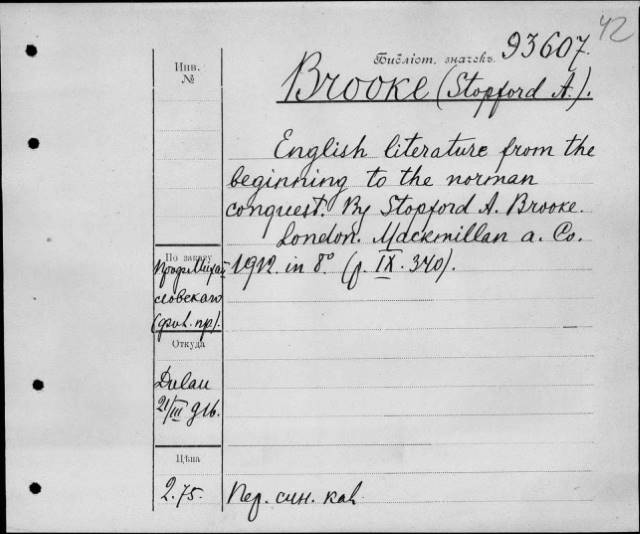 42
Инв.
№
Библіот. значекъ 93607.
Brooke (Stopford A.).
English literature from the
beginning to the norman
conquest. By Stopford A. Brooke.
London. Mackmillan a. Co.
1912. in 8° (p. IX. 340).
По заказу
Проф. Михай-
ловскаго
Откуда
Dulau
21/III
Цѣна
2.75.
Пер. син. кал.